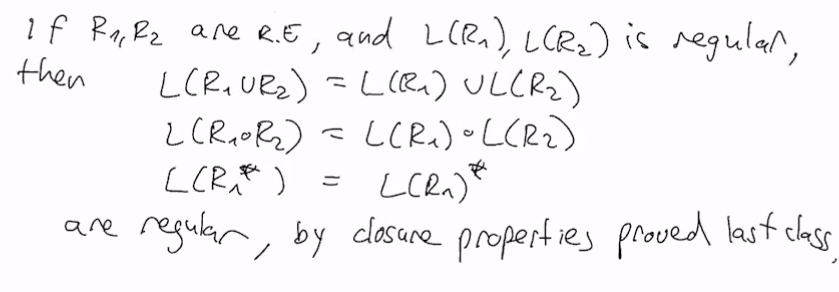 if R₁, R₂ are R.E, and L(R₁), L(R₂) is regular,
then L(R₁∪R₂) = L(R₁) ∪ L(R₂)
L(R₁∘R₂) = L(R₁)∘L(R₂)
L(R₁*) = L(R₁)*
are regular, by closure properties proved last class.